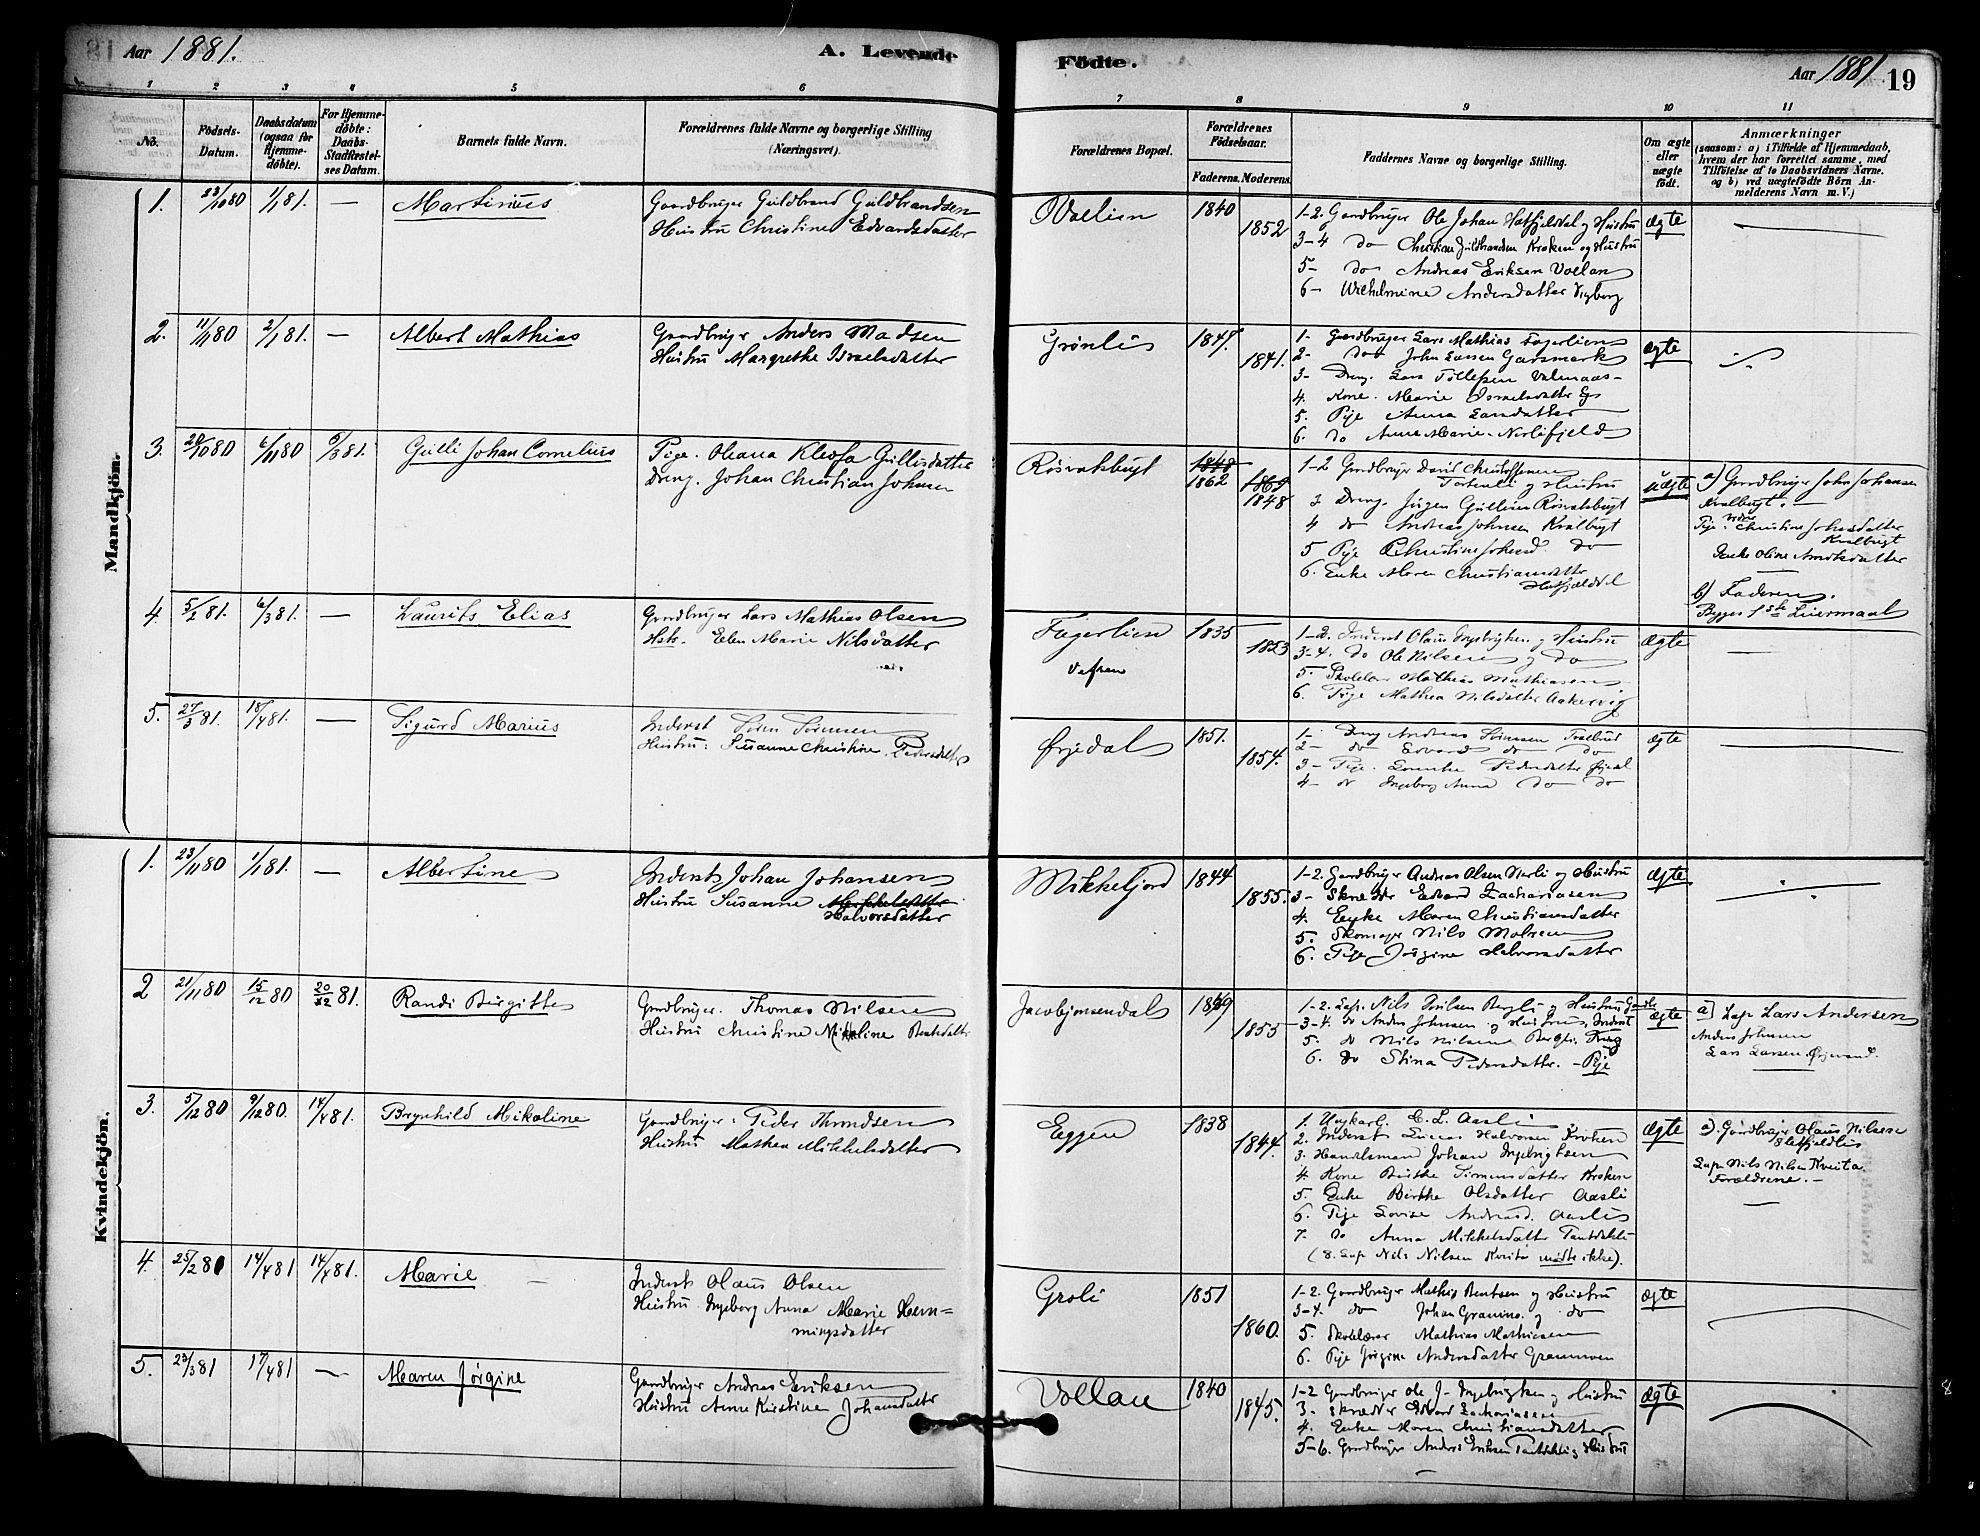 Aar 1881.
A. Levende
Födte.
Aar 1881
19
1 2 3 4 5 6
7 8 9 10 11
No.
Födsels-Datum.
Daabsdatum (ogsaa for Hjemmedöbte).
For Hjemmedöbte: Daabs-Stadfæstelses Datum.
Barnets fulde Navn.
Forældrenes fulde Navne og borgerlige Stilling (Næringsvei).
Forældrenes Bopæl.
Forældrenes Födselsaar.
Faderens. Moderens.
Faddernes Navne og borgerlige Stilling.
Om ægte eller uægte födt.
Anmærkninger
(saasom: a) i Tilfælde af Hjemmedaab,
hvem der har forrettet samme, med
Tilföielse af to Daabsvidners Navne.
og b) ved uægtefödte Börn An-
melderens Navn m. V.)
Mandkjön.
1. 23/10 80 1/1 81. — Martinus
Gaardbruger Guldbrand Guldbrandsen
Hustru Christine Edvardsdatter
1840
1852
1-2. Gaardbruger Ole Johan Hatfjeldal og Hustru
3-4 do Christian Guldbrandsen Kroken og Hustru
5- do Andreas Eriksen Vollan
6- Wilhelmine Andersdatter
Ægte
2. 11/11 80 2/1 81. — Albert Mathias
Gaardbruger Anders Madsen
Hustru Margrethe Israelsdatter
Grønli
1847.
1841.
1- Gaardbruger Lars Mathias Fagerlien
2- do John Larsen Garsmark
3- Dreng. Lars Tollefsen
4. Kone. Marie Israelsdatter
5. Pige Anna Larsdatter
6. do Anne Marie
ægte
3. 20/10 80 6/11 80 6/3 81. Gulli Johan Cornelius
Pige. Oliana Kleofa Gullisdatter
Dreng. Johan Christian Johnsen
Røsvatsbugt
1848
1862
1848
1-2 Gaardbruger David Christoffersen
og Hustru
3 Dreng. Jörgen Gullisen Røsvatsbugt
4 do Andreas Johnsen Kvalbugt
5 Pige Christine Johnsd. do
6. Enke Maren Christiansdatter
Hatfjeldal
uægte
a) Gaardbruger John Johansen
Kvalbugt. —
Pige Christine Johnsdatter
Kvalbugt
Enke Oline
b) Faderen.
Begges 1ste Leiermaal
4 5/2 81. 6/3 81. — Laurits Elias
Gaardbruger Lars Mathias Olsen
Hstr. Elen Marie Nilsdatter
Fagerlien
Vefsen
1835
1853
1-2. Inderst Olaus Ingebrigtsen og Hustru
3-4. do Ole Nilsen og do
5. Skolelærer Mathias Mathiasen
6. Pige Mathea Nilsdatter Aakervig
Ægte
5. 27/3 81. 18/4 81. — Sigurd Marius
Inderst Sören Sörensen
Hustru: Susanne Christine Pedersdatter
Ørjedal
1851.
1854.
1- Dreng Andreas Sörensen
2- do Edvard do do
3- Pige. Pedersdatter
4- do Ingeborg Anna do do
ægte
Kvindekjön.
1. 23/11 80 1/1 81. — Albertine
Inderst Johan Johansen
Hustru Susanne Mikkelsdatter
Halvorsdatter
Mikkeljord
1844
1855.
1-2. Gaardbruger Andreas Olsen og Hustru
3- Skrædder Edvard Zachariasen
4. Enke Maren Christiansdatter
5. Skomager Nils
6. Pige Jørgine Halvorsdatter
ægte
2 21/11 80 15/12 80 20/12 81. Randi Birgitte
Gaardbruger. Thomas Nilsen
Hustru Christine Nikoline Bentsdatter
Jacobjonsendal
1849
1855
1-2. Lap. Nils Nilsen Bergli og Hustru
3-4. do Anders Johnsen og Hustru, Inderst
5. do Nils Nilsen Bergli. Dreng
6. do Stina Pedersdatter. — Pige
ægte
a) Lap Lars Andersen
Anders Johnsen
Lars Larsen.
3. 5/12 80 9/12 80. 14/4 81. Brynhild Mikaline
Gaardbruger: Peder Thomdsen
Hustru Mathea Mikkelsdatter
Eggen
1838
1844.
1. Ungkarl. C. L. Aasli
2. Inderst Lucas Halvorsen Kroken
3. Handelsmand Johan Ingebrigtsen
4. Kone Birthe Simonsdatter Kroken
5. Enke Birthe Olsdatter Aasli
6. Pige Lovise Andreasd. Aasli
7. do Anna Mikkelsdatter
(8. Lap Nils Nilsen Kvita mödte ikke).
ægte
a). Gaardbruger Olaus Nilsen
Lap. Nils Nilsen Kvita
Forældrene. —
4. 25/2 81 14/4 81 14/4 81. Marie —
Inderst Olaus Olsen
Hustru. Ingeborg Anna Marie Hem=
mingsdatter
Groli
1851
1860.
1-2. Gaardbruger Mathis Bentsen og Hustru
3-4. do Johan og do
5. Skolelærer Mathias Mathiasen
6. Pige Jørgine Andersdatter
ægte
5. 23/3 81 17/4 81 — Maren Jørgine
Gaardbruger Andreas Eriksen
Hustru Anne Kirstine Johansdatter
Vollan
1840
1845.
1-2 Gaardbruger Ole J. Ingebrigtsen og Hustru
3- Skrædder Edvard Zachariasen
4. Enke Maren Christiansdatter
5-6. Gaardbruger Anders Eriksen og Hustru
ægte
8